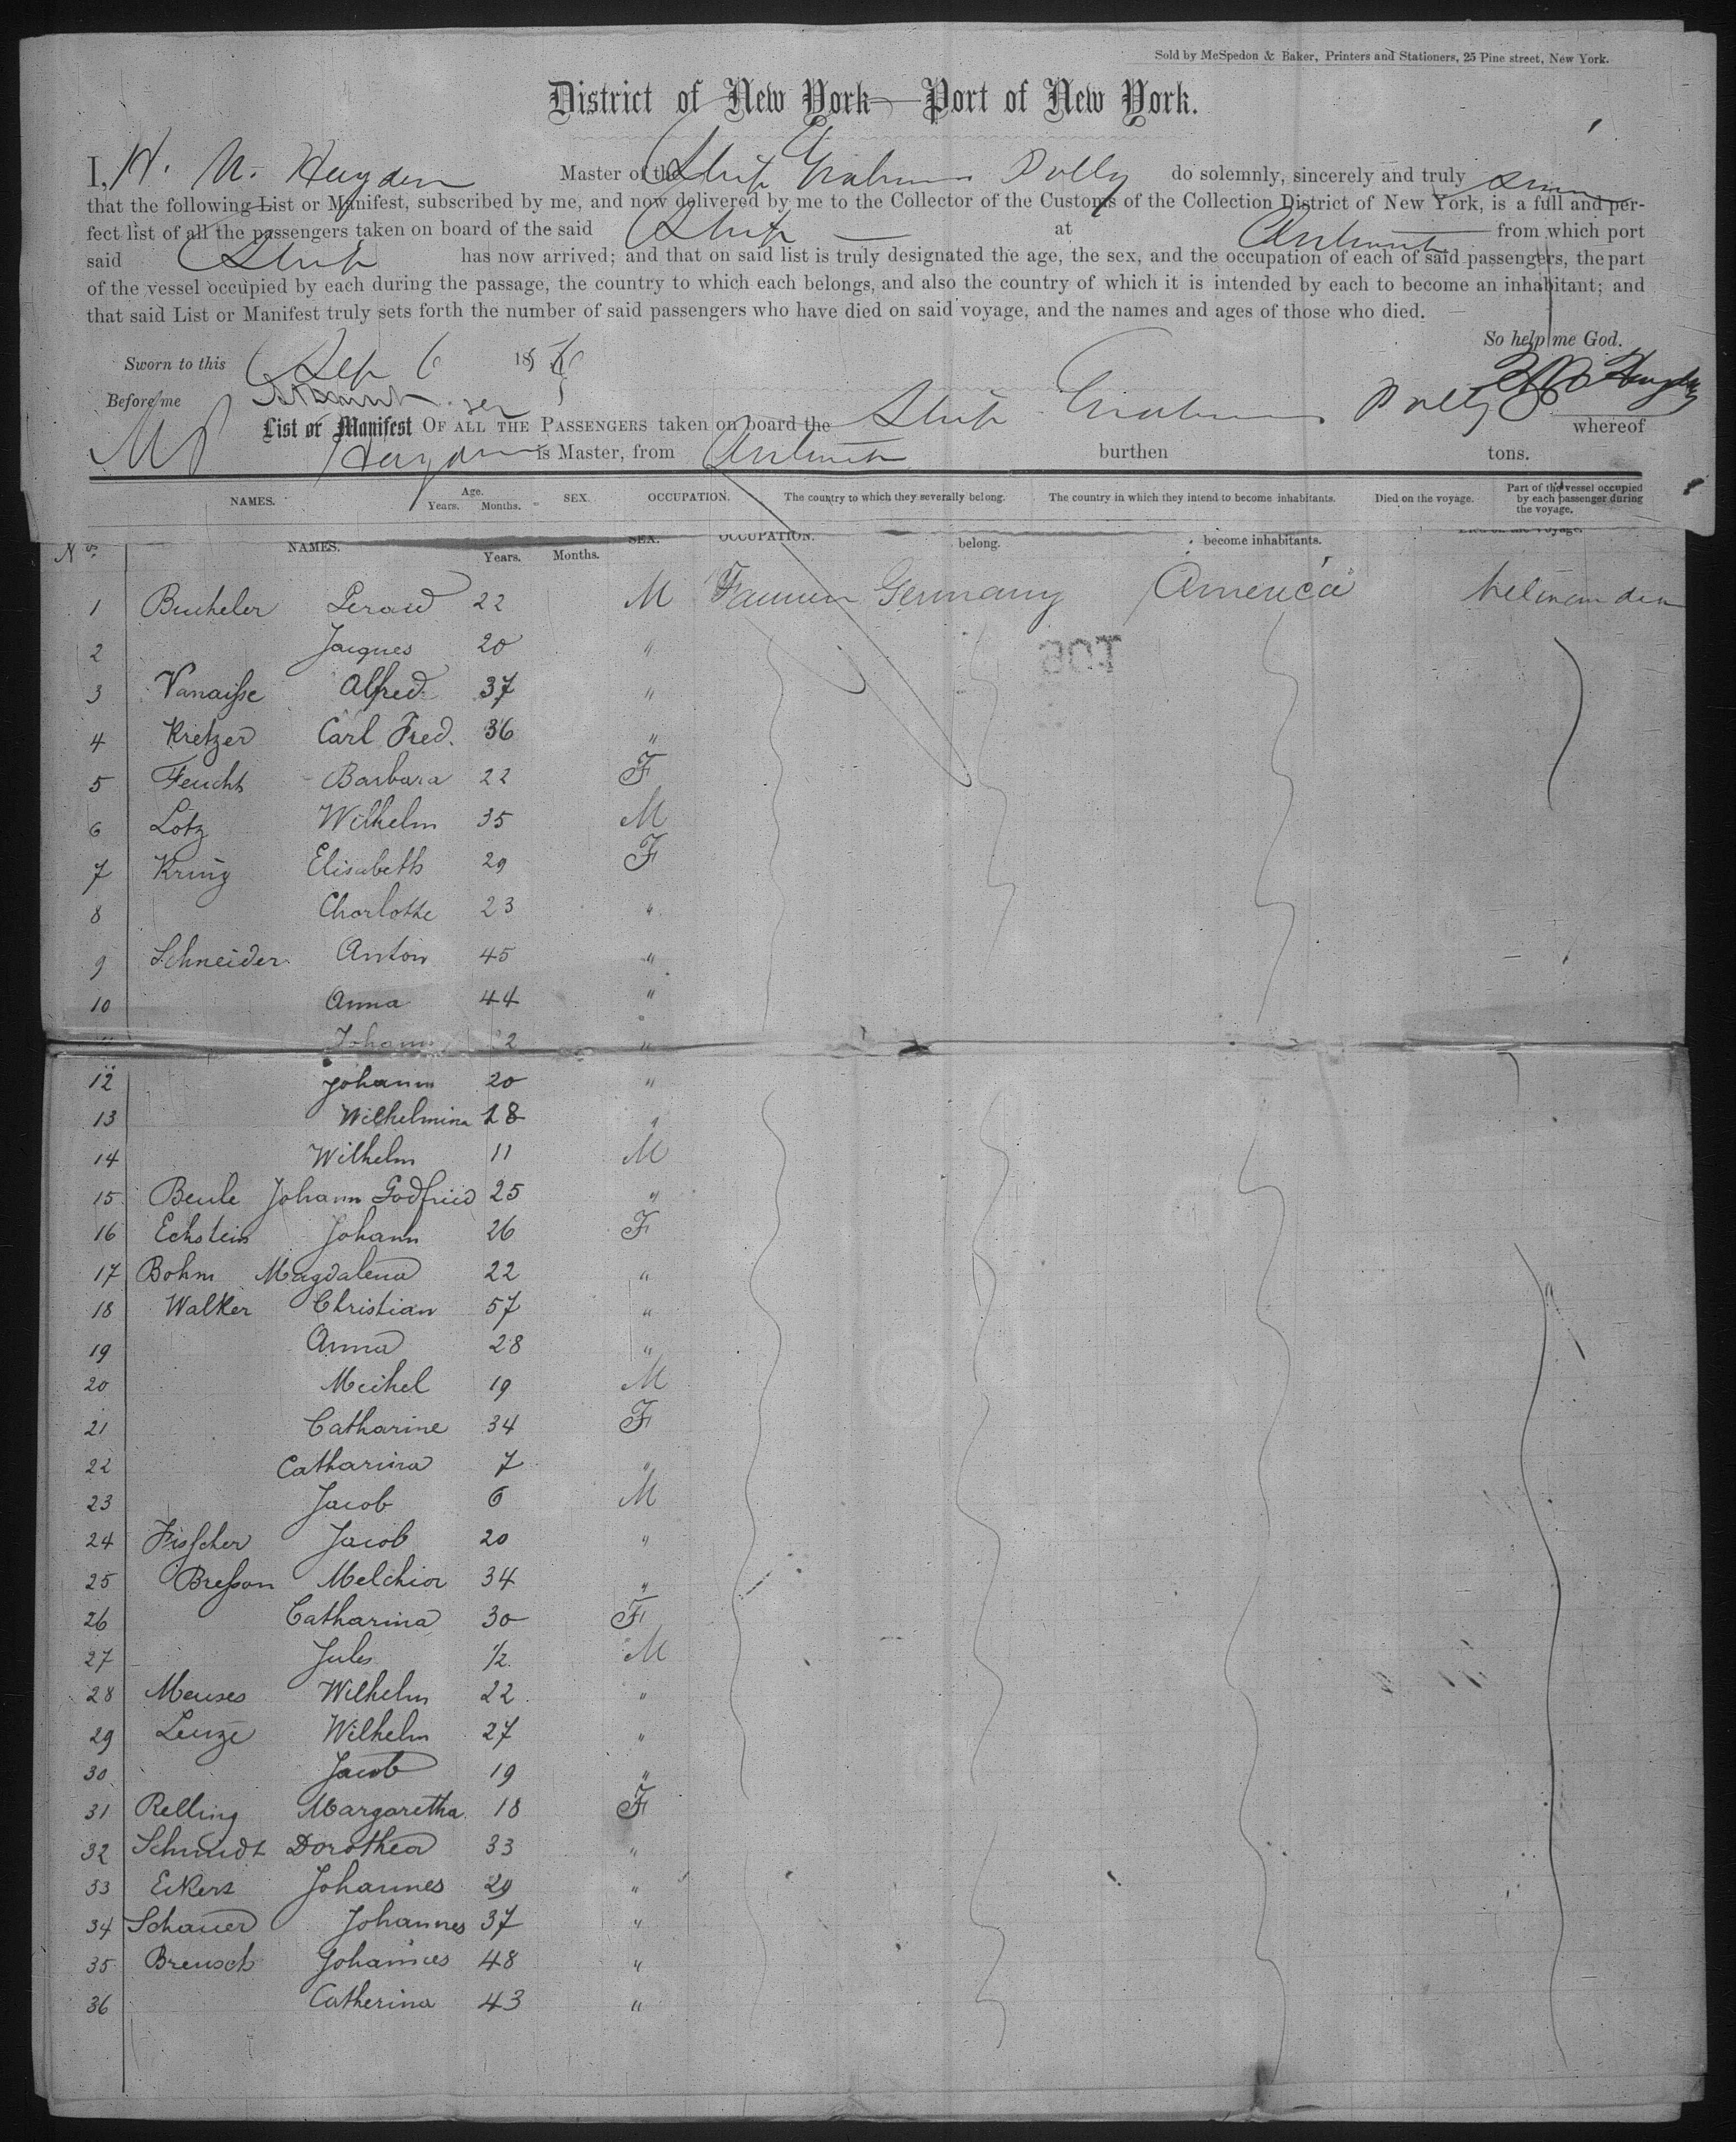 Sold by McSpedon & Baker, Printers and Stationers, 25 Pine street, New York.
District of New York—Port of New York.
I, H. N. Hayden Master of the Ship Graham's Polly do solemnly, sincerely and truly swear
that the following List or Manifest, subscribed by me, and now delivered by me to the Collector of the Customs of the Collection District of New York, is a full and per-
fect list of all the passengers taken on board of the said Ship at Antwerp from which port
said Ship has now arrived; and that on said list is truly designated the age, the sex, and the occupation of each of said passengers, the part
of the vessel occupied by each during the passage, the country to which each belongs, and also the country of which it is intended by each to become an inhabitant; and
that said List or Manifest truly sets forth the number of said passengers who have died on said voyage, and the names and ages of those who died.
So help me God.
Sworn to this Sep 6 18
Before me
List or Manifest OF ALL THE PASSENGERS taken on board the Ship Graham's Polly whereof
Hayden is Master, from Antwerp burthen tons.
NAMES. Age. Years. Months. SEX. OCCUPATION. The country to which they severally belong. The country in which they intend to become inhabitants. Died on the voyage. Part of the vessel occupied by each passenger during the voyage.
Nos. NAMES. Years. Months. SEX. OCCUPATION. belong. become inhabitants. Died on the voyage.
1 Bucheler 22 M Farmer Germany America
2 Jacques 20 "
3 Vanaisse Alfred 37 "
4 Kretzer Carl Fred. 36 "
5 Feucht Barbara 22 F
6 Lotz Wilhelm 35 M
7 Kring Elisabeth 29 F
8 Charlotte 23 "
9 Schneider Anton 45 "
10 Anna 44 "
" Johann 2 "
12 Johann 20 "
13 Wilhelmina 18 "
14 Wilhelm 11 M
15 Beule Johann Godfried 25 "
16 Eckstein Johann 26 F
17 Bohm Magdalena 22 "
18 Walker Christian 57 "
19 Anna 28 "
20 Michel 19 M
21 Catharine 34 F
22 Catharina 7 "
23 Jacob 6 M
24 Fisscher Jacob 20 "
25 Bresson Melchior 34 "
26 Catharina 30 F
27 Jules 1/2 M
28 Meuses Wilhelm 22 "
29 Leuze Wilhelm 27 "
30 Jacob 19 "
31 Relling Margaretha 18 F
32 Schmidt Dorothea 33 "
33 Eckert Johannes 29 "
34 Schauer Johannes 37 "
35 Breusch Johannes 48 "
36 Catherina 43 "